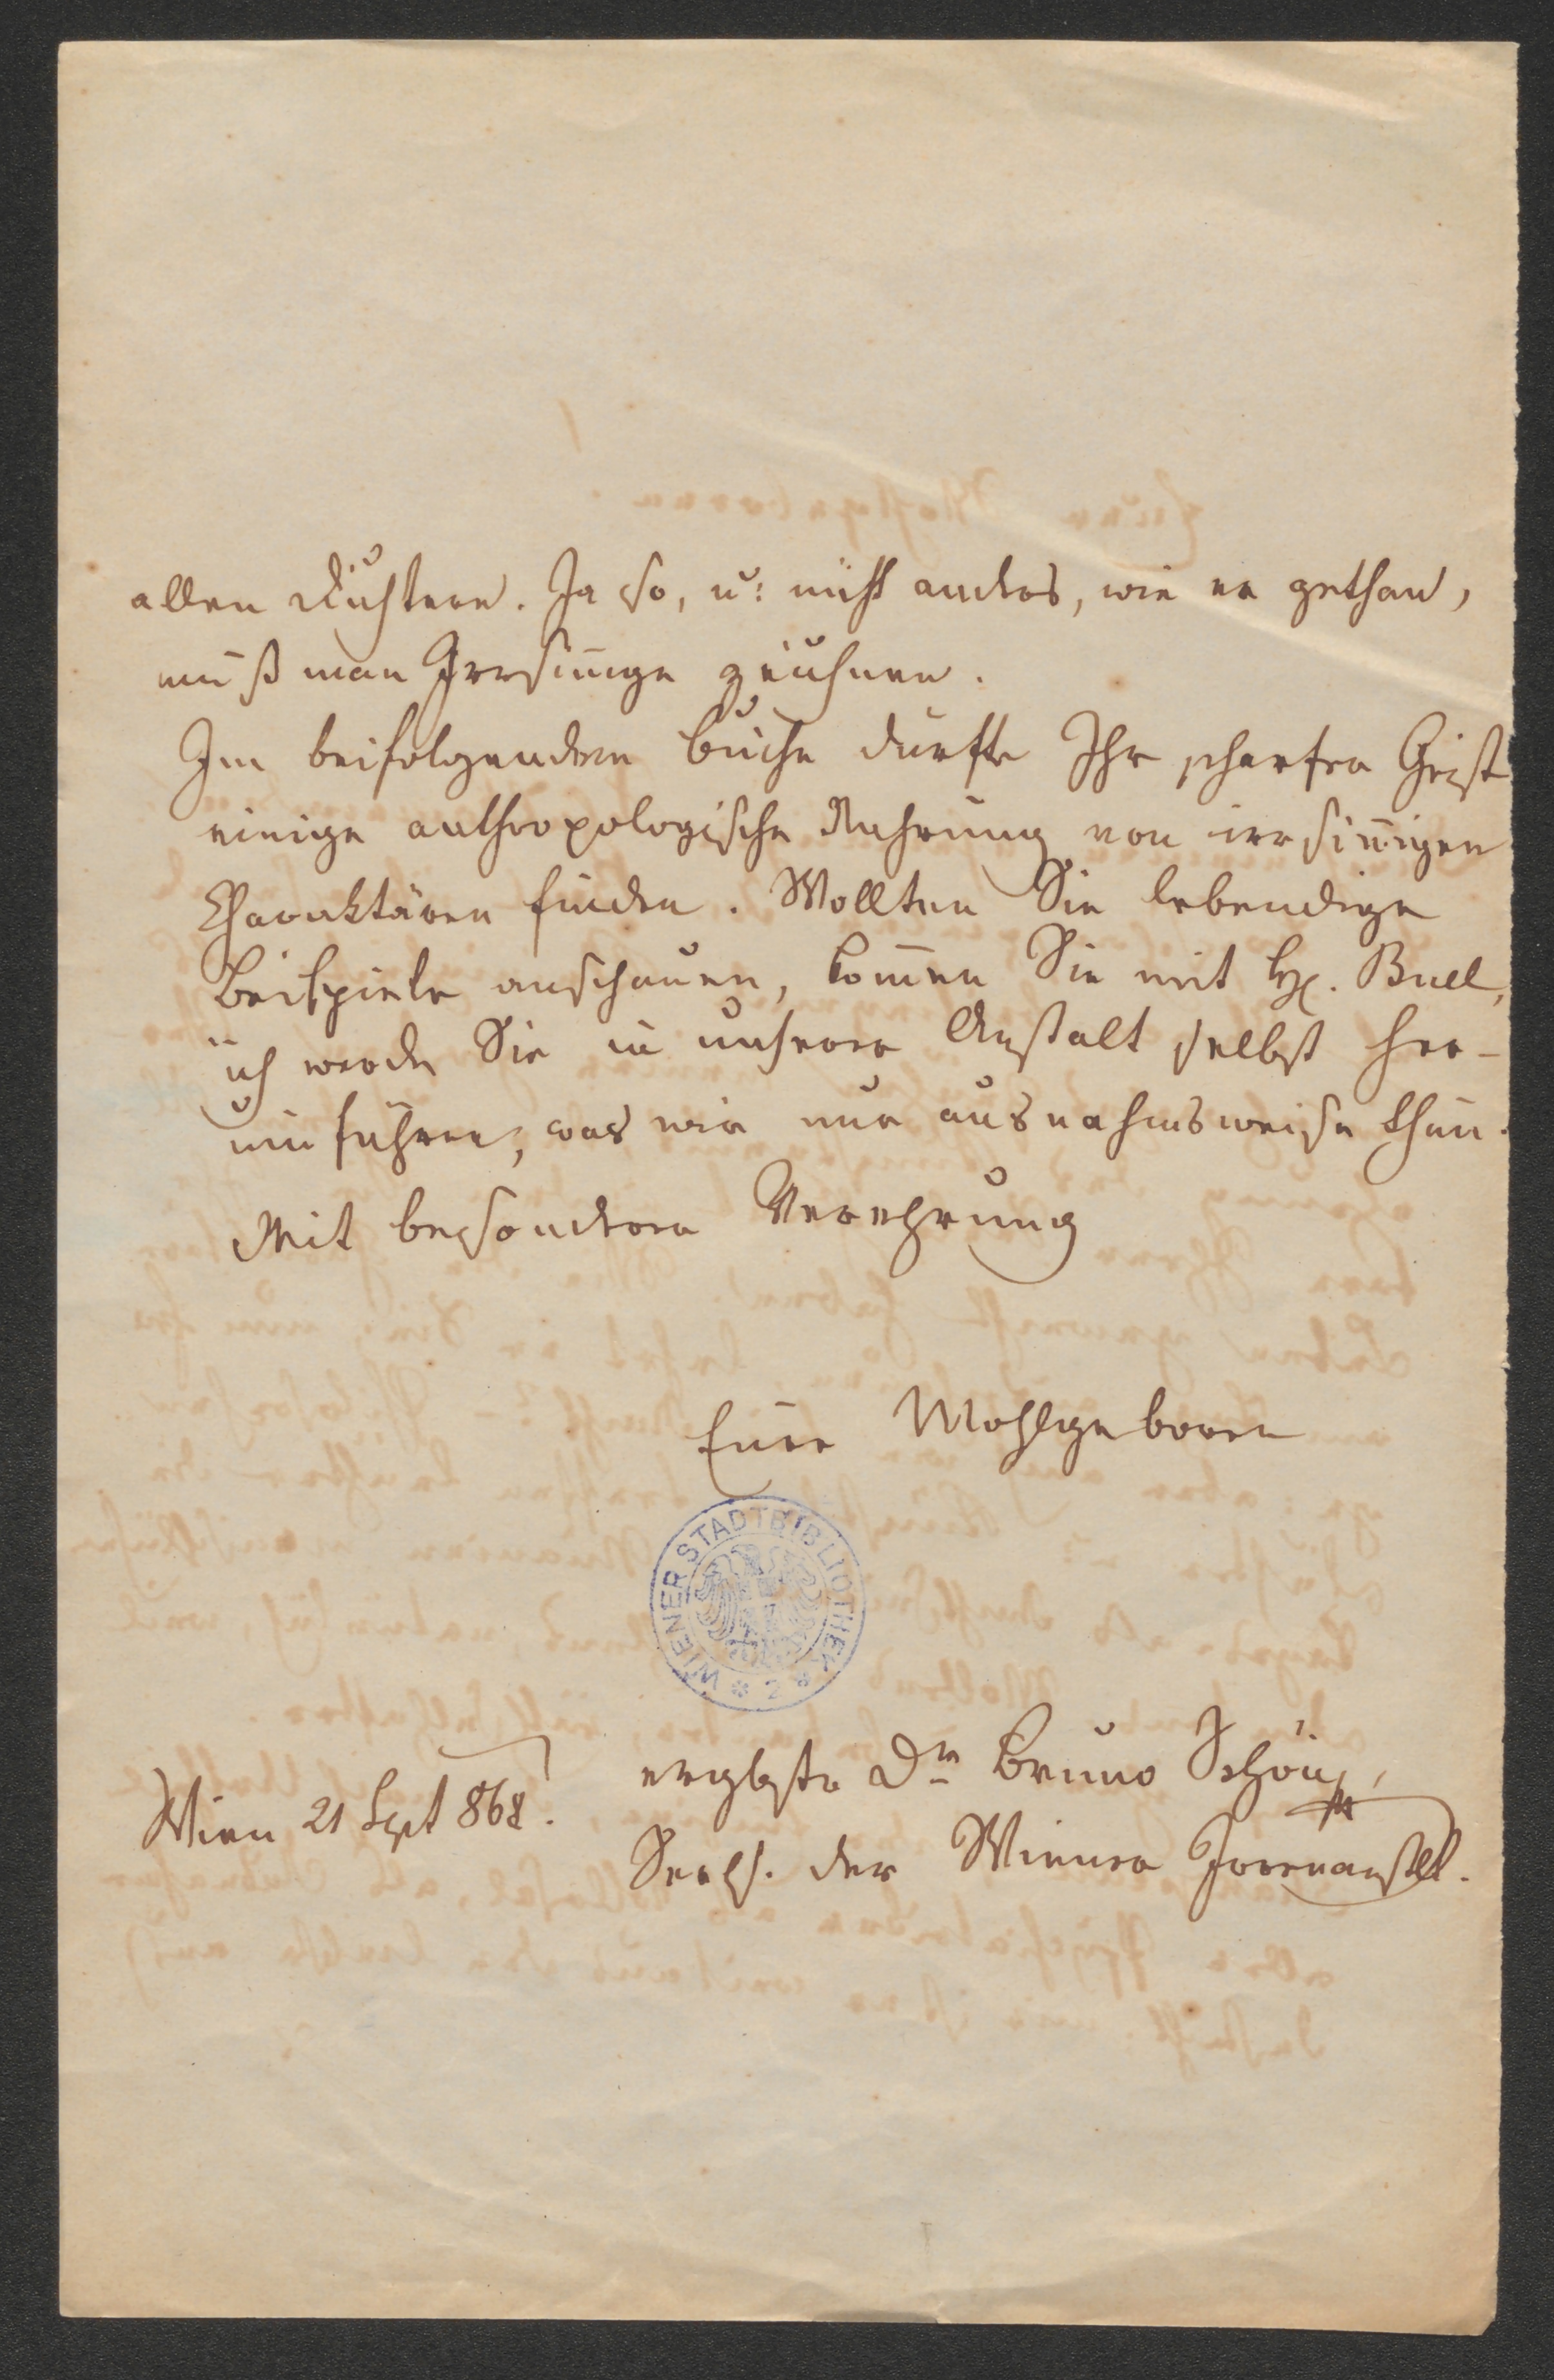 allen Dichtern. Ja so, u: nicht anders, wie er gethan,
muß man Irrsinnige zeichnen.
Im beifolgenden Buche dürfte Ihr scharfer Geist
einige anthropologische Nahrung von irrsinnigen
Charaktären finden. Wollten Sie lebendige
Beispiele anschauen, kom̄en Sie mit H. Buel,
ich werde Sie in unserer Anstalt selbst her-
um führen, was wir nur ausnahmsweise thun.
Mit besonderer Verehrung
Euer Wohlgeboren
WIENER STADTBIBLIOTHEK * 2 *
ergbster Dr Bruno Schön,
Wien 21 Sept 868.
Seels. der Wiener Irrenanstlt.